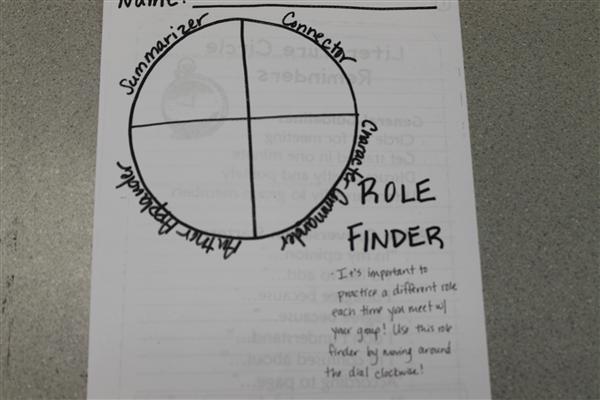 Name:
Summarizer
Connector
Character Commander
Author Applauder
ROLE
FINDER
- It's important to
practice a different role
each time you meet w/
your group! Use this role
finder by moving around
the dial clockwise!